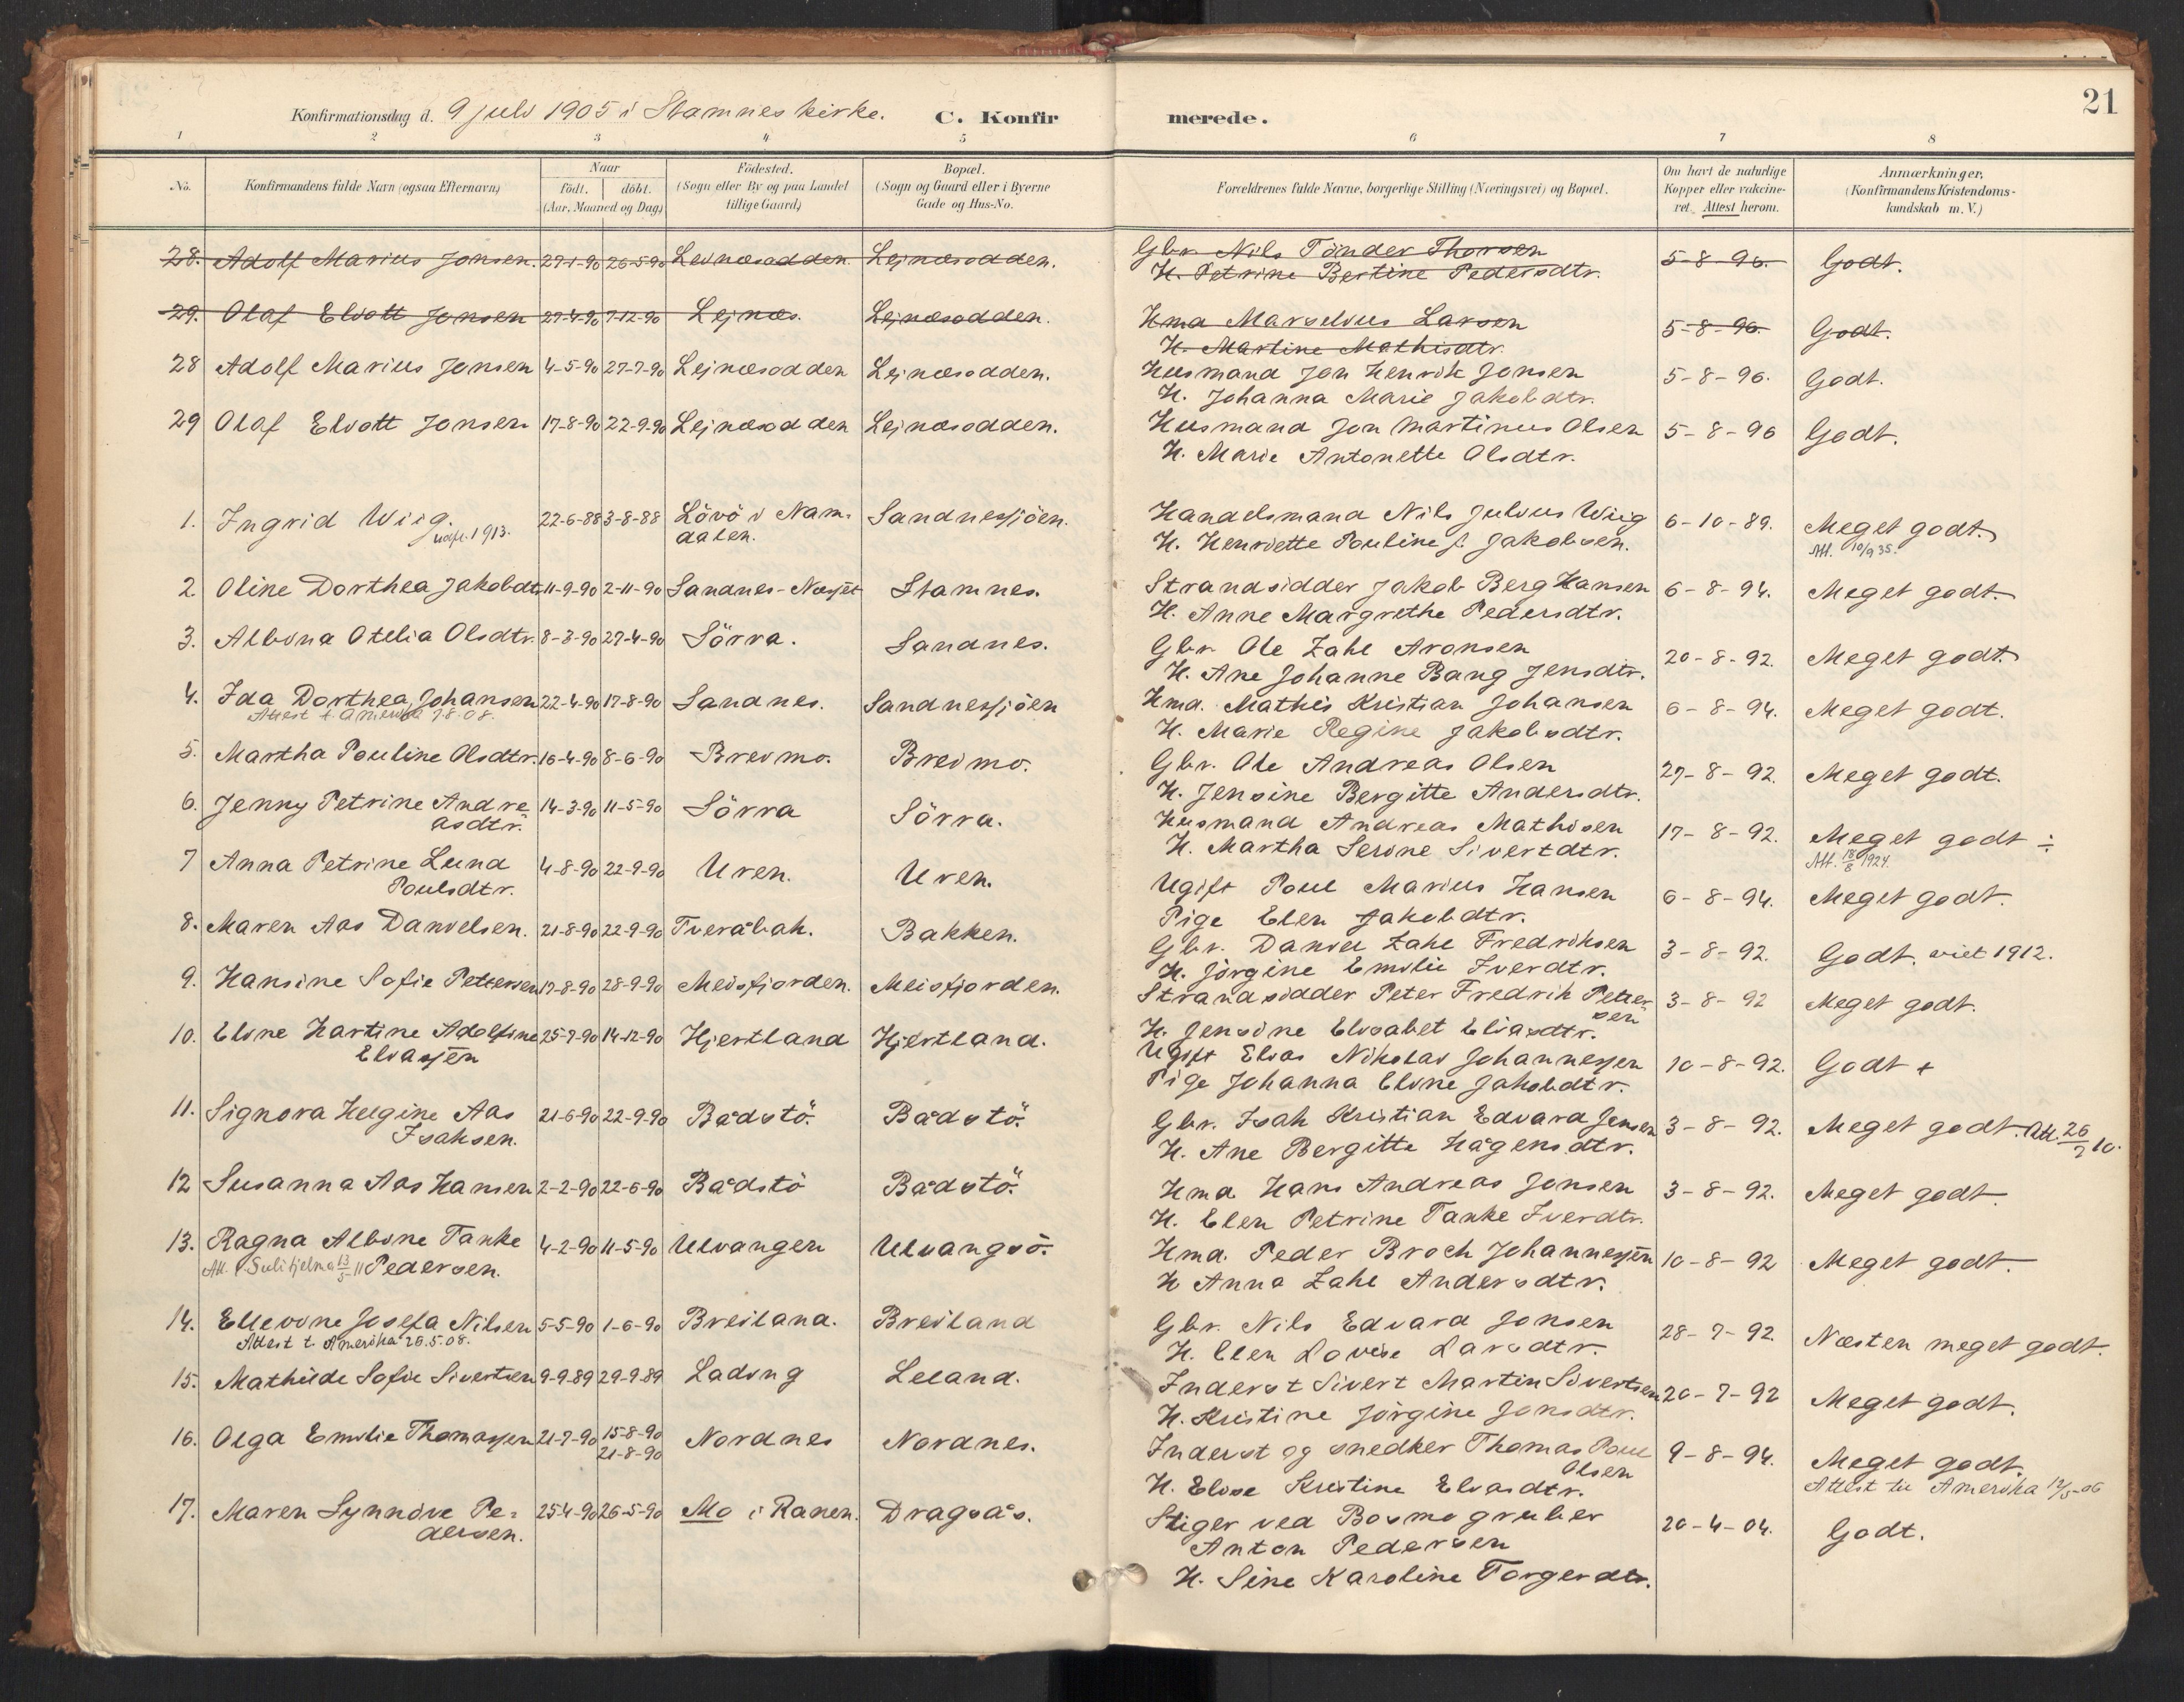 21
Konfirmationsdag d. 9 juli 1905 i Stamnes kirke. C. Konfirmerede.
1 2 3 4 5 6 7 8
No. Konfirmandens fulde Navn (ogsaa Efternavn) Naar født. døbt. (Aar, Maaned og Dag) Födested. (Sogn eller By og paa Landet tillige Gaard) Bopæl. (Sogn og Gaard eller i Byerne Gade og Hus-No. Forældrenes fulde Navne, borgerlige Stilling (Næringsvei) og Bopæl. Om havt de naturlige Kopper eller vakcineret. Attest herom. Anmærkninger, (Konfirmandens Kristendomskundskab m.V.)
28. Adolf Marius Jonsen. 27-1-90 26-5-90 Leinæsodden. Lejnæsodden. Gbr. Nils Tönder Thorsen 5-8-96. Godt.
H. Petrine Bertine Pedersdtr.
29. Olaf Elvott Jensen 27-4-90 7-12-90 Lejnæs. Lejnæsodden. Hmd Marselius Larsen 5-8-96. Godt.
H. Martine Mathisdtr.
28 Adolf Marius Jonsen 4-5-90 27-7-90 Lejnæsodden Lejnæsodden. Husmand Jon Henrik Jonsen 5-8-96. Godt.
H. Johanna Marie Jakobdtr.
29 Olaf Elvott Jonsen 17-8-90 22-9-90 Lejnæsodden Lejnæsodden. Husmand Jon Martinus Olsen 5-8-96 Godt.
H. Marie Antonette Olsdtr.
1. Ingrid Wiig. 22-6-88 3-8-88 Lövö i Nam- Sandnessjöen. Handelsmand Nils Julius Wiig 6-10-89. Meget godt.
udfl. 1913. dalen. H. Henriette Pouline f. Jakobsen. Att. 10/9 35.
2. Oline Dorthea Jakobdtr. 11-9-90 2-11-90 Sandnes-Næsset Stamnes. Strandsidder Jakob Berg Hansen 6-8-94. Meget godt.
H. Anne Margrethe Pedersdtr.
3. Albina Otelia Olsdtr. 8-3-90 27-4-90 Sörra. Sandnes. Gbr. Ole Zahl Aronsen 20-8-92. Meget godt.
H. Ane Johanne Bang Jensdtr.
4. Ida Dorthea Johansen 22-4-90 17-8-90 Sandnes. Sandnessjöen Hmd. Mathis Kristian Johansen 6-8-94. Meget godt.
Attest t. Amerika 7.8.08. H. Marie Regine Jakobsdtr.
5. Martha Pouline Olsdtr. 16-4-90 8-6-90 Breimo. Breimo. Gbr. Ole Andreas Olsen 27-8-92. Meget godt.
H. Jensine Bergitte Andersdtr.
6. Jenny Petrine Andre 14-3-90 11-5-90 Sörra Sörra. Husmand Andreas Mathisen 17-8-92. Meget godt ÷
asdtr. H. Martha Serine Sivertdtr. Att. 18/8 1924.
7 Anna Petrine Lund 4-8-90 22-9-90 Uren. Uren. Ugift Poul Marius Hansen 6-8-94. Meget godt.
Poulsdtr. Pige Elen Jakobdtr.
8. Maren Aas Danielsen. 21-8-90 22-9-90 Tveråbak. Bakken. Gbr. Daniel Zahl Fredriksen 3-8-92. Godt. viet 1912.
H. Jörgine Emilie Iverdtr.
9. Hansine Sofie Pettersen 17-8-90 28-9-90 Meisfjorden. Meisfjorden. Strandsidder Peter Fredrik Petter 3-8-92 Meget godt.
sen
H. Jensine Elisabet Eliasdtr.
10. Eline Hartine Adolfine 25-7-90 14-12-90 Hjertland Hjertland. Ugift Elias Nikolai Johannessen 10-8-92. Godt +
Eliassen Pige Johanna Eline Jakobdtr.
11. Signora Helgine Aas 21-6-90 22-9-90 Bådstö. Bådstö. Gbr. Isak Kristian Edvard Jensen 3-8-92. Meget godt. Att. 26/2 10.
Isaksen. H. Ane Bergitta Hågensdtr.
12 Susanna Aas Hansen 2-2-90 22-6-90 Bådstö Bådstö. Hmd Hans Andreas Jonsen 3-8-92. Meget godt.
H. Elen Petrine Tanke Iverdtr.
13. Ragna Albine Tanke 4-2-90 11-5-90 Ulvangen Ulvangsö. Hmd. Peder Broch Johannessen 10-8-92 Meget godt.
Att. t. Sulitjelma 13/5 11 Pedersen. H Anna Zahl Andersdtr.
14. Ellevine Josefa Nilsen 5-5-90 1-6-90 Breiland. Breiland Gbr. Nils Edvard Jonsen 28-7-92 Næsten meget godt.
Attest t. Amerika 26.5.08. H. Elen Lovise Larsdtr.
15. Mathilde Sofie Sivertsen 9-9-89 29-9-89 Lading Leland. Inderst Sivert Martin Sivertsen 20-7-92 Meget godt.
H. Kristine Jörgine Jonsdtr.
16. Olga Emilie Thomassen 21-7-90 15-8-90 Nordnes Nordnes. Inderst og snedker Thomas Poul 9-8-94. Meget godt.
21-8-90 Olsen Attest til Amerika 12/5-06
H. Elise Kristine Eliasdtr.
17. Maren Synnöve Pe- 25-4-90 26-5-90 Mo i Ranen. Dragsås. Stiger ved Bosmo gruber 20-4-04. Godt.
dersen. Anton Pedersen
H. Sine Karoline Torgerdtr.